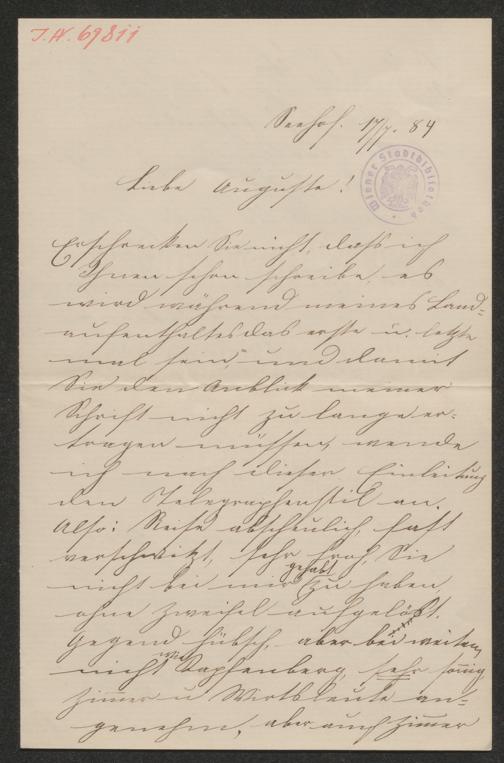 J. N. 69811
Seehof. 17/7. 84
Wiener Stadtbibliothek
Liebe Auguste!
Erschrecken Sie nicht, dass ich
Ihnen schon schreibe, es
wird während meines Land-
aufenthaltes das erste u. letzte
mal sein, und damit
Sie den Anblick meiner
Schrift nicht zu lange er-
tragen müssen, wende
ich nach dieser Einleitung
den Telegraphenstil an.
Also: Reise abscheulich, fast
verschmitzt, sehr froh, Sie
nicht bei mir gehabt zu haben,
ohne Zweifel aufgelöst.
Gegend hübsch, aber bei weitem
nicht wie Kapfenberg, sehr sonnig
Zimmer u Wirtsleute an-
genehm, aber auch Zimmer